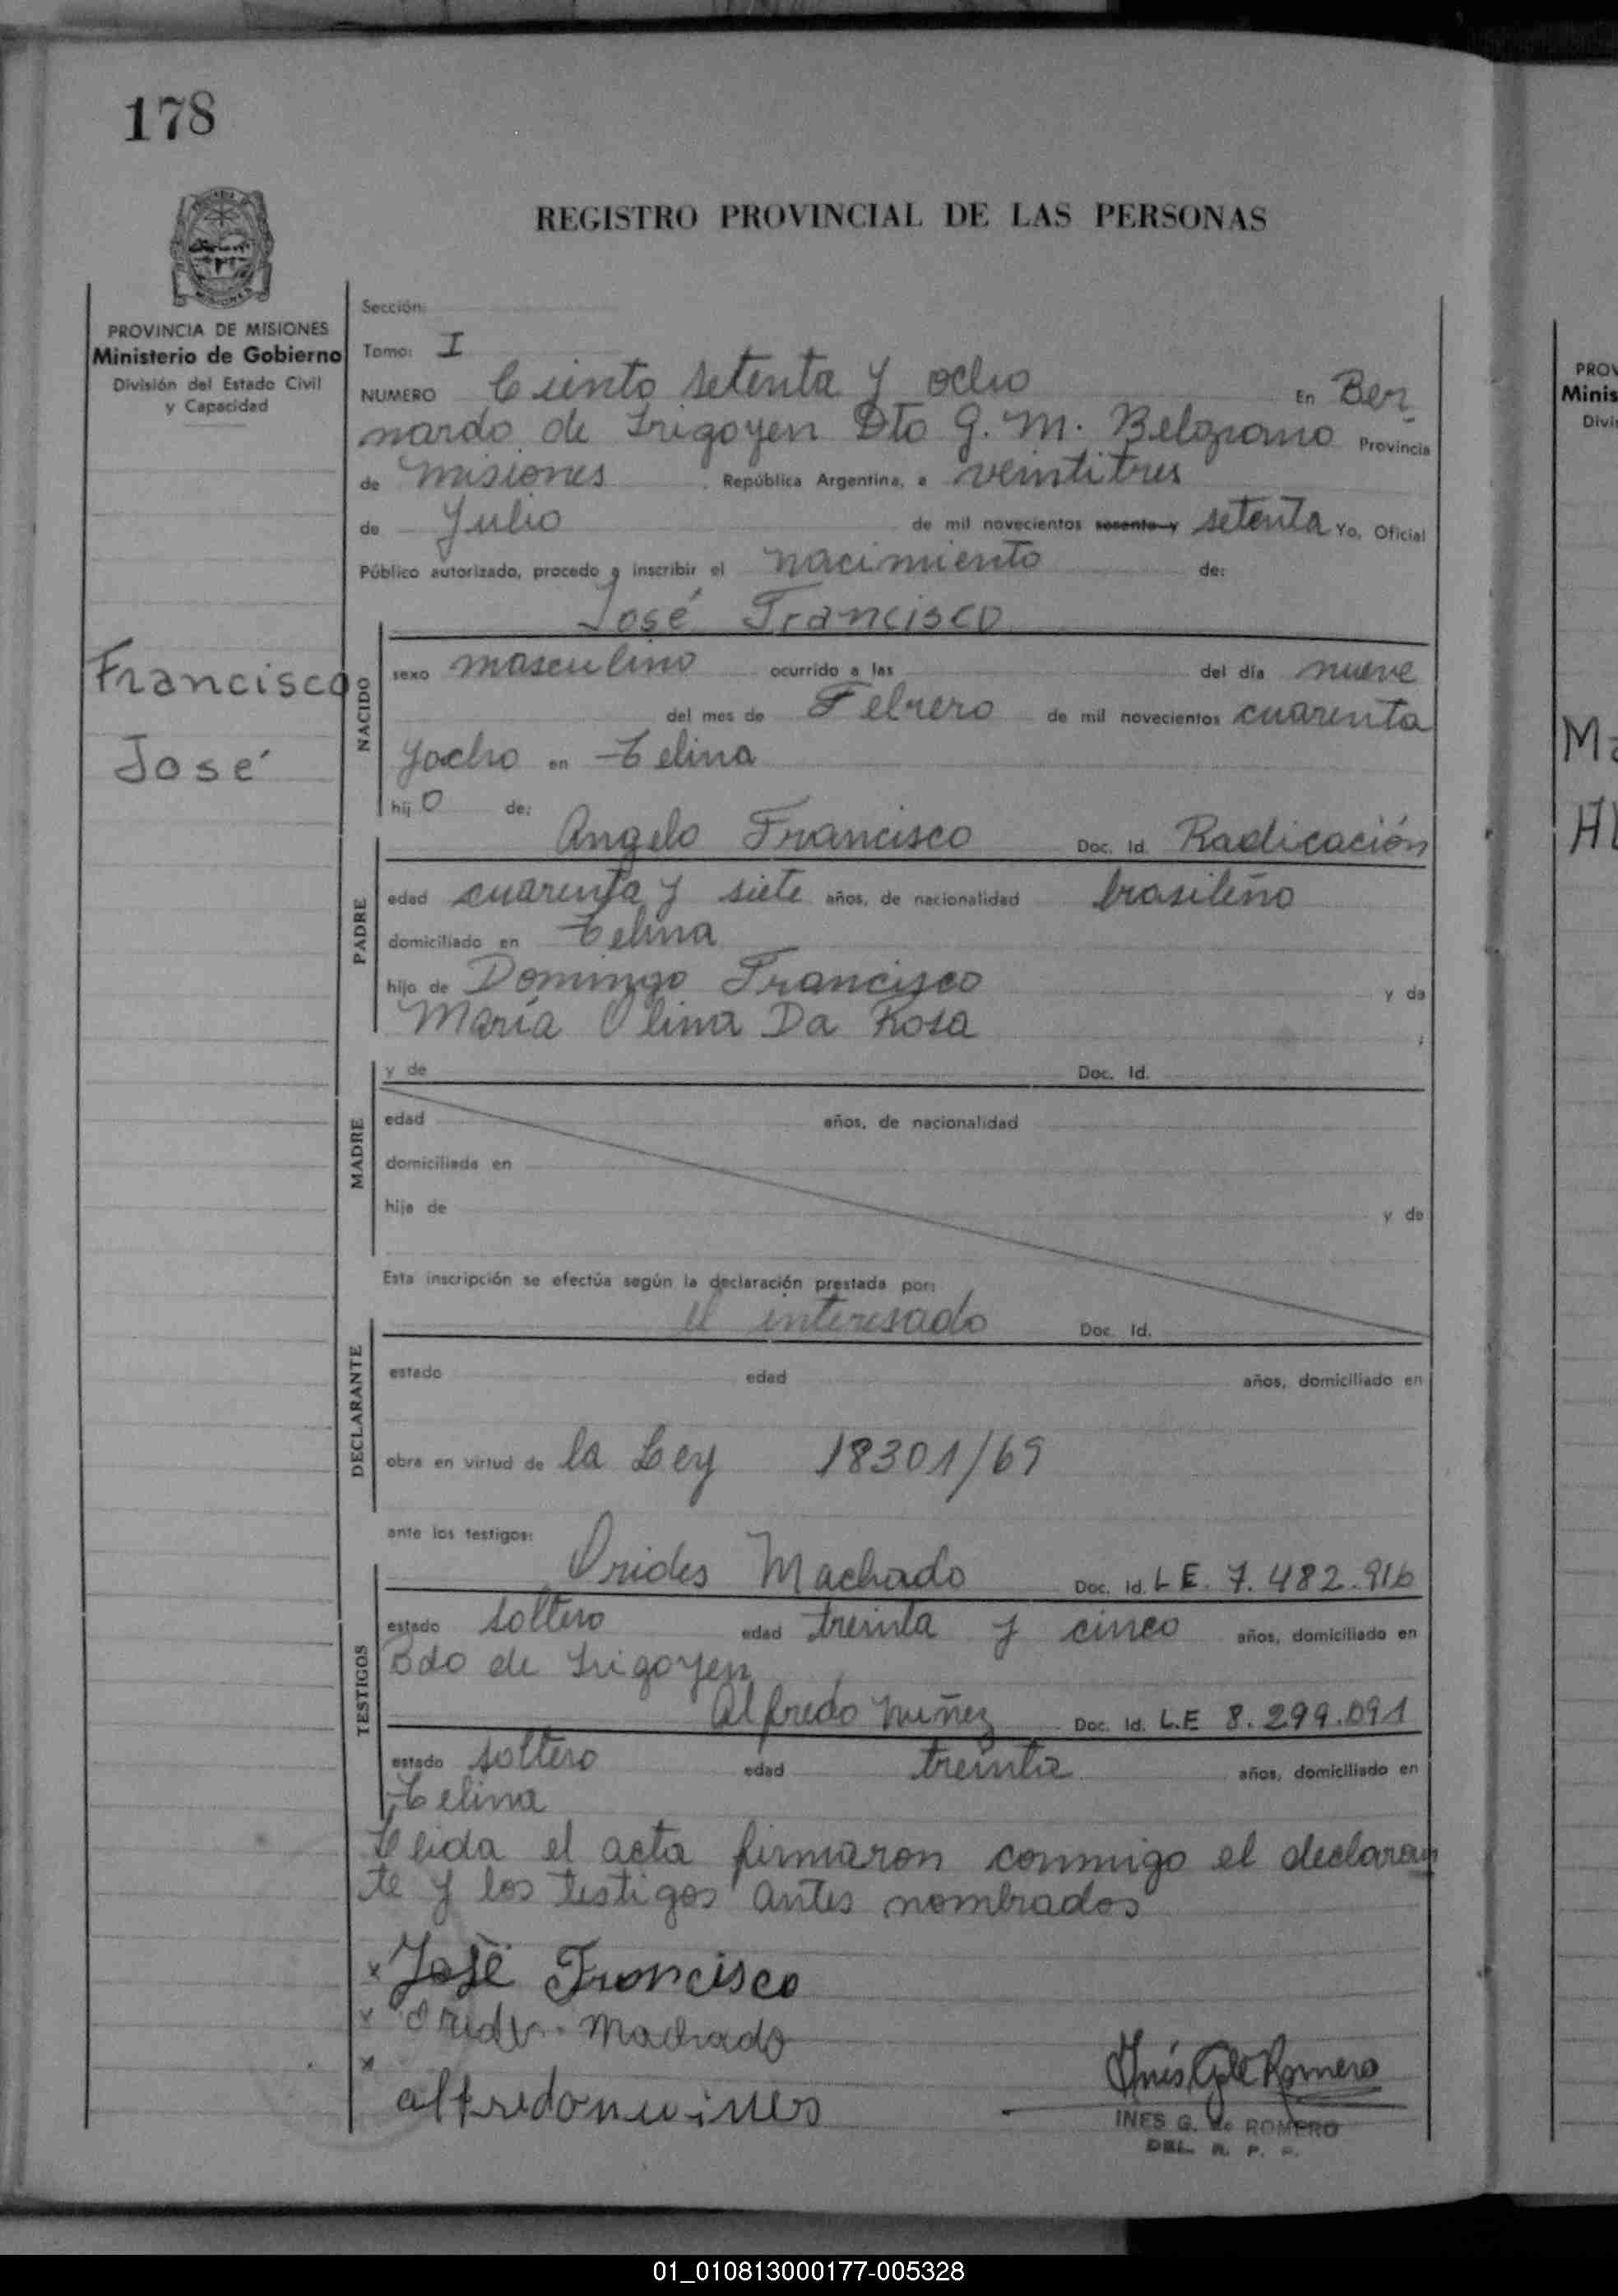 178
REGISTRO PROVINCIAL DE LAS PERSONAS
PROVINCIA DE MISIONES
Ministerio de Gobierno
División del Estado Civil
y Capacidad
Francisco
José
Sección:
Tomo: I
NUMERO Ciento setenta y ocho En Ber
nardo de Irigoyen Dto G. M. Belgrano Provincia
de Misiones República Argentina, a veintitres
de Julio de mil novecientos sesenta y setenta Yo, Oficial
Público autorizado, procedo a inscribir el nacimiento de:
José Francisco
NACIDO
sexo masculino ocurrido a las del día nueve
del mes de Febrero de mil novecientos cuarenta
y ocho en Celina
hij o de:
Angelo Francisco Doc. Id. Radicación
PADRE
edad cuarenta y siete años, de nacionalidad brasileño
domiciliado en Celina
hijo de Domingo Francisco y de
María Olina Da Rosa ;
y de Doc. Id.
MADRE
edad años, de nacionalidad
domiciliada en
hija de y de
Esta inscripción se efectúa según la declaración prestada por:
el interesado Doc. Id.
DECLARANTE
estado edad años, domiciliado en
obra en virtud de la Ley 18301/69
ante los testigos:
Orides Machado Doc. Id. L E. 7.482.916
TESTIGOS
estado soltero edad treinta y cinco años, domiciliado en
Bdo de Irigoyen
Alfredo Nuñez Doc. Id. L.E 8.299.091
estado soltero edad treinta años, domiciliado en
Celina
Leida el acta firmaron conmigo el declaran
te y los testigos antes nombrados
x José Francisco
x Orides Machado
x
INES G. de ROMERO
DEL. R. P. P.
PROV
Minis
Divi
01_010813000177-005328